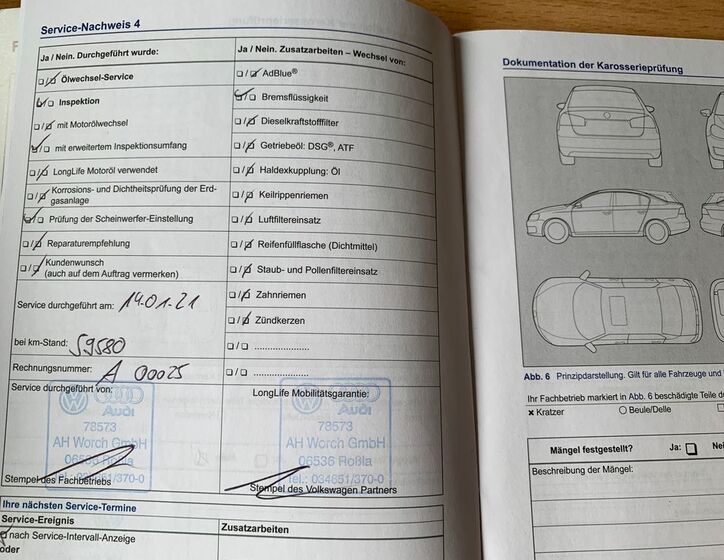 Service-Nachweis 4
Ja / Nein. Durchgeführt wurde:
Ja / Nein. Zusatzarbeiten – Wechsel von:
Ölwechsel-Service
AdBlue®
Inspektion
Bremsflüssigkeit
mit Motorölwechsel
Dieselkraftstofffilter
mit erweitertem Inspektionsumfang
Getriebeöl: DSG®, ATF
LongLife Motoröl verwendet
Haldexkupplung: Öl
Korrosions- und Dichtheitsprüfung der Erd-
gasanlage
Keilrippenriemen
Prüfung der Scheinwerfer-Einstellung
Luftfiltereinsatz
Reparaturempfehlung
Reifenfüllflasche (Dichtmittel)
Kundenwunsch
(auch auf dem Auftrag vermerken)
Staub- und Pollenfiltereinsatz
Zahnriemen
Service durchgeführt am: 14.01.21
Zündkerzen
bei km-Stand: 59580
Rechnungsnummer: A 00025
Service durchgeführt von:
LongLife Mobilitätsgarantie:
Audi
78573
AH Worch GmbH
06536 Roßla
Tel.: 034651/370-0
Stempel des Fachbetriebs
Audi
78573
AH Worch GmbH
06536 Roßla
Tel.: 034651/370-0
Stempel des Volkswagen Partners
Ihre nächsten Service-Termine
Service-Ereignis
Zusatzarbeiten
nach Service-Intervall-Anzeige
oder
Dokumentation der Karosserieprüfung
Abb. 6 Prinzipdarstellung. Gilt für alle Fahrzeuge und
Ihr Fachbetrieb markiert in Abb. 6 beschädigte Teile
Kratzer
Beule/Delle
Mängel festgestellt?
Ja:
Beschreibung der Mängel: